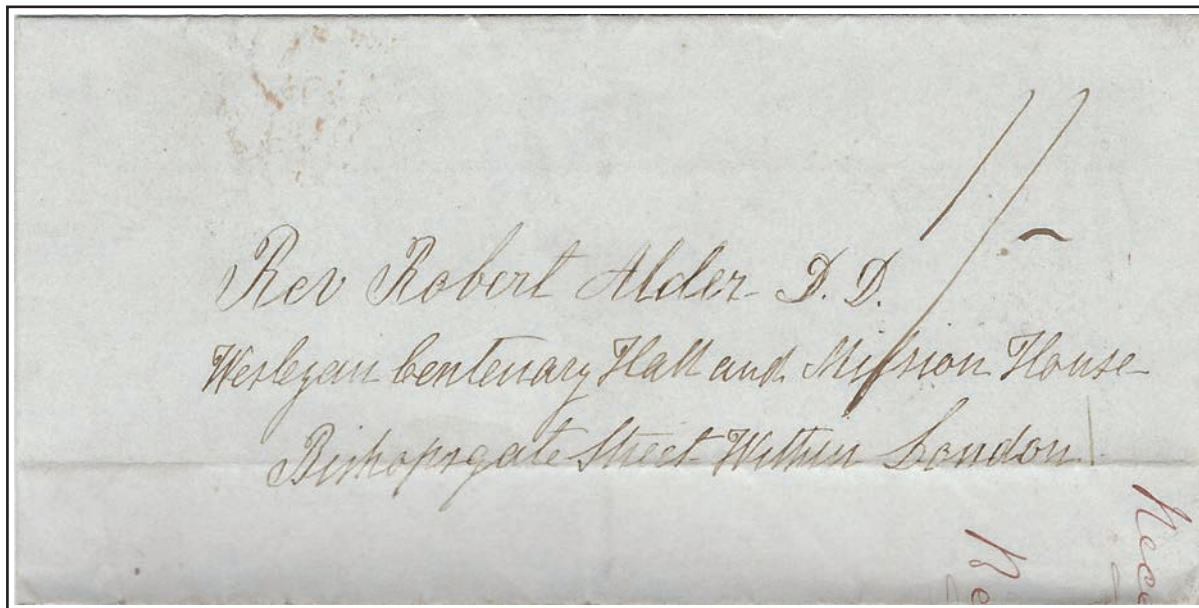 1/-
Rev Robert Alder D.D.
Wesleyan Centenary Hall and Mission House
Bishopsgate Street Within London